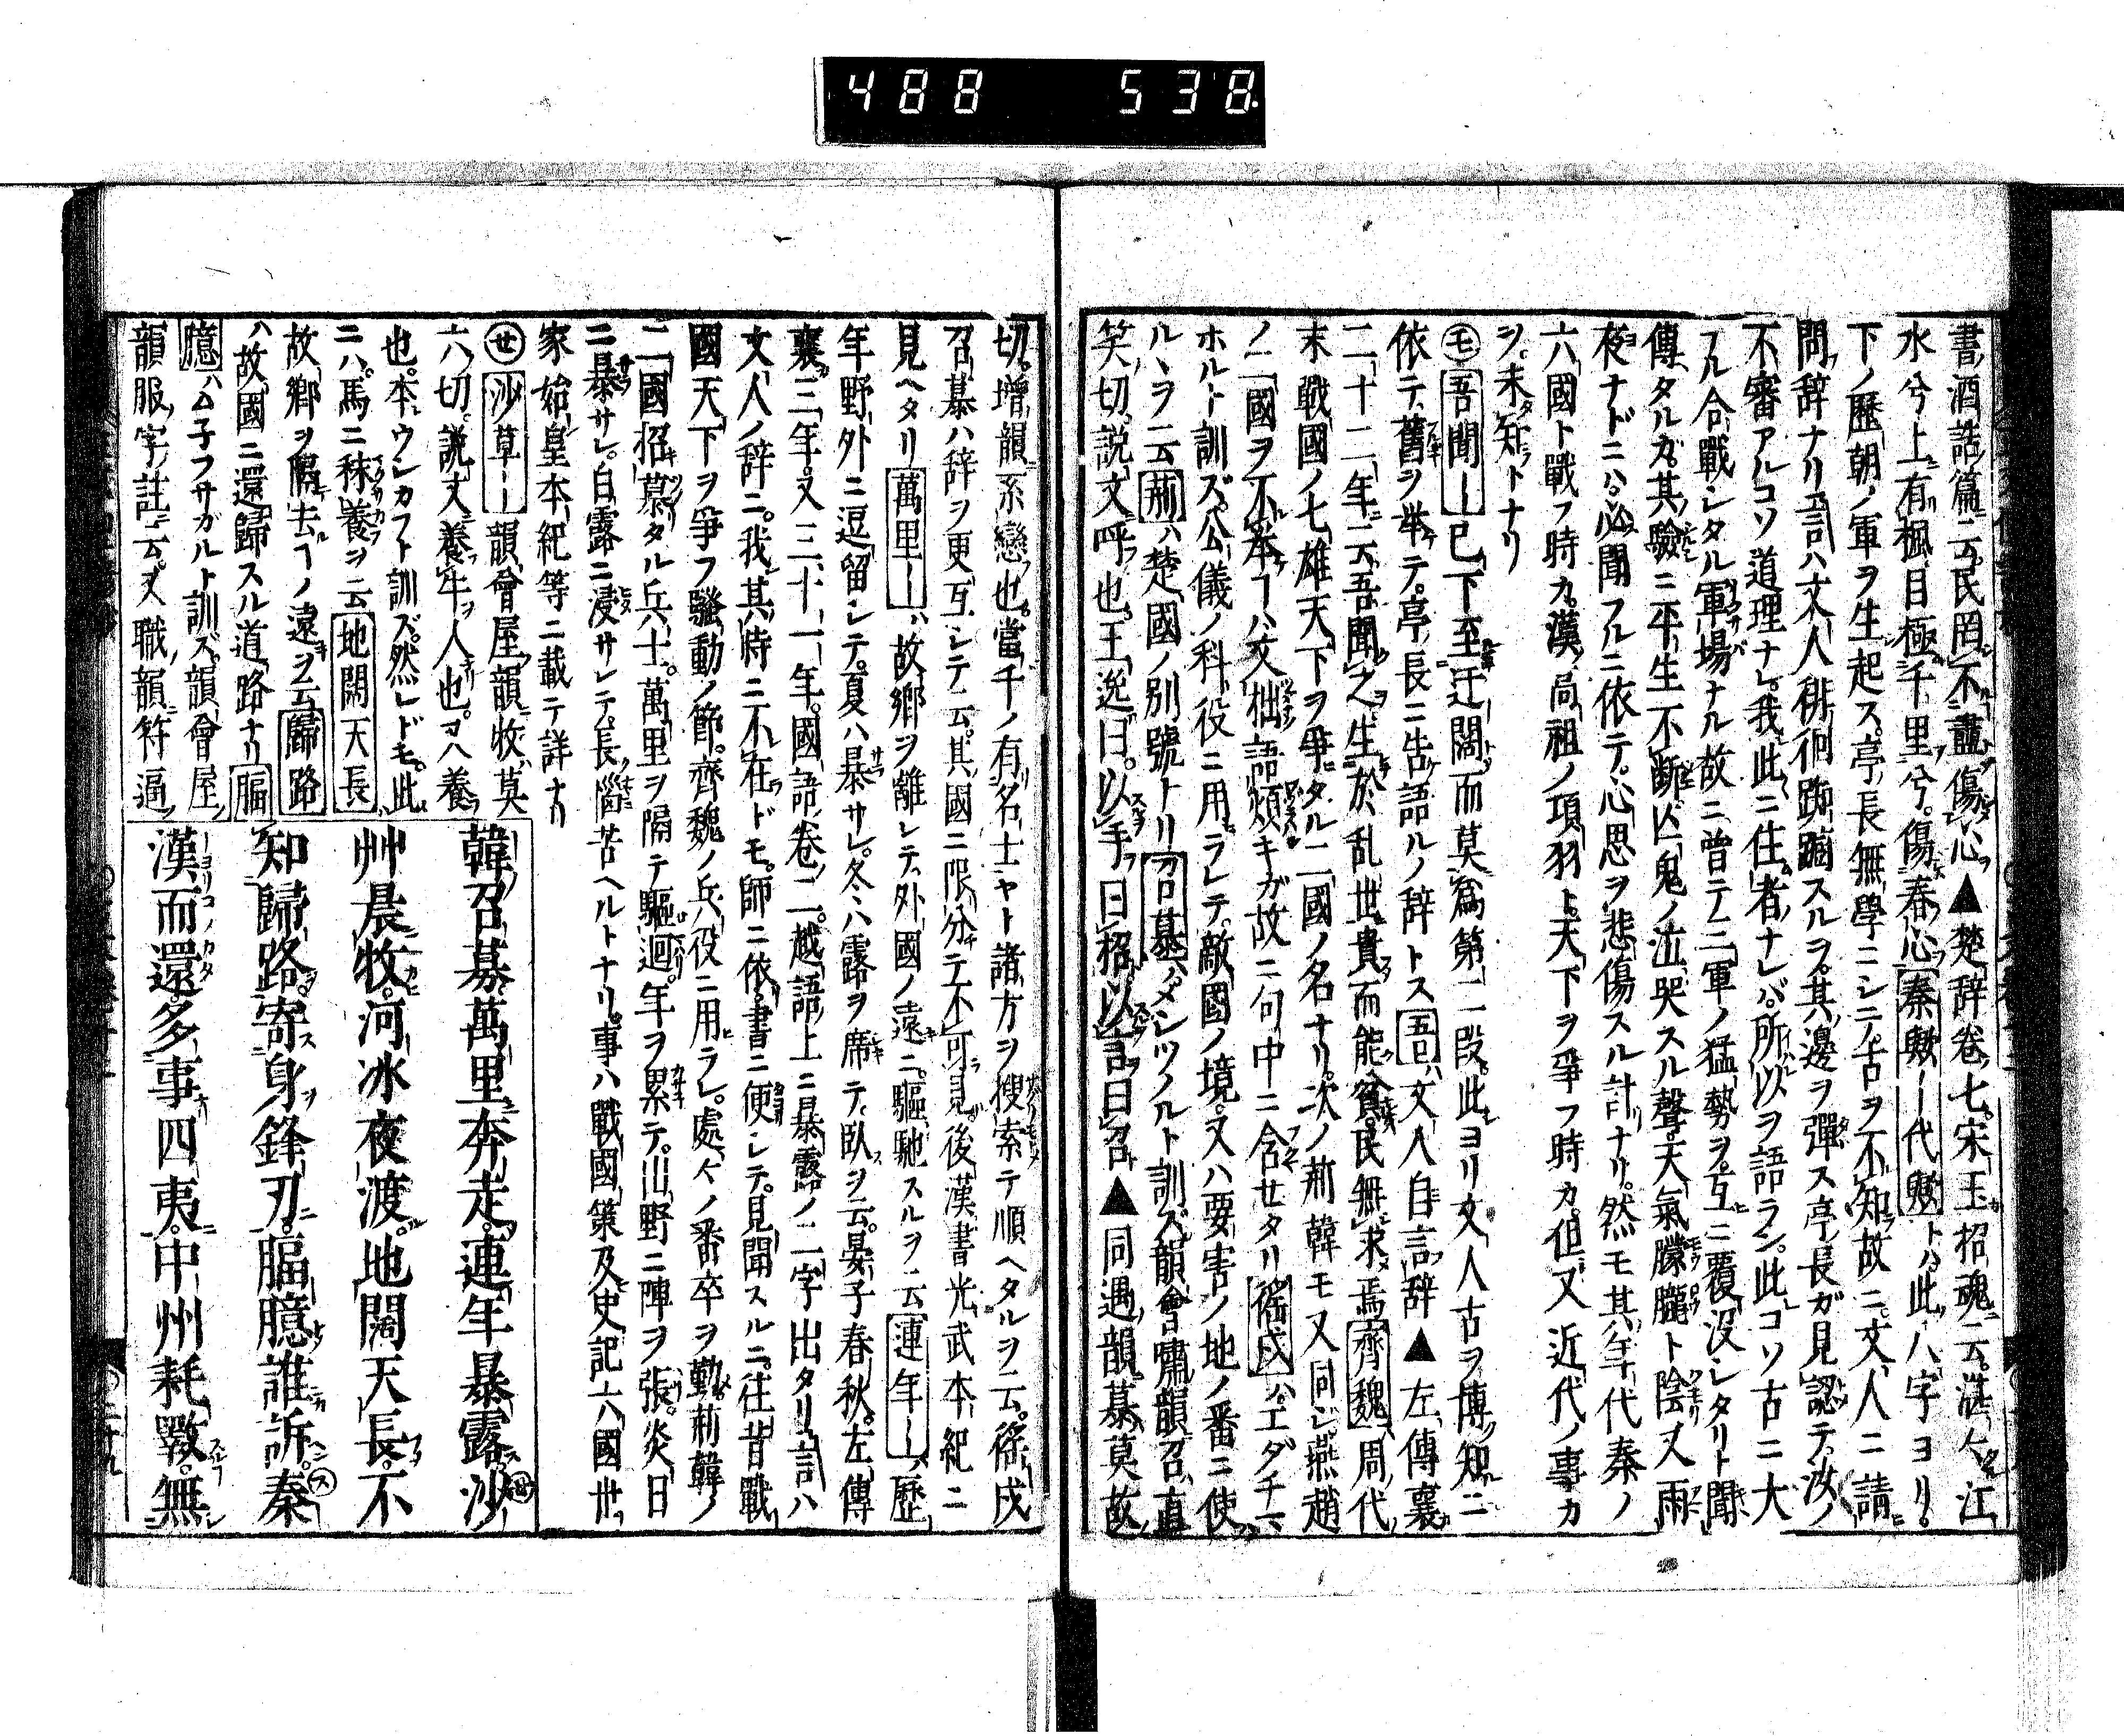 488 538
書酒誥篇ニ云民罔不盡傷心▲楚辞巻七宋玉招魂云湛々江
水兮上有楓目極千里兮傷春心秦歟―代歟トハ此八字ヨリ
下ノ歴朝ノ軍ヲ生起ス亭長無學ニシニ古ヲ不知故ニ文人ニ請
問辞ナリ言ハ文人徘徊踟蹰スルヲ其邊ヲ彈ス亭長ガ見認テ汝ノ
不審アルコソ道理ナレ我此ニ住者ナレバ所以ヲ語ラン此コソ古ニ大
フル合戰シタル軍場ナル故ニ曽テ三軍ノ猛勢ヲ互ニ覆没シタリト聞
傳タルガ其驗ニ平生不断ニ鬼ノ泣哭スル聲天氣朦朧ト陰又雨
夜ナドニハ必聞フルニ依テ心思ヲ悲傷スル計ナリ然モ其年代秦ノ
六國ト戰フ時カ漢ノ高祖ノ項羽ト天下ヲ爭フ時カ但又近代ノ事カ
ヲ未知トナリ
吾聞―巳下至迂闊而莫為第二段此ヨリ文人古ヲ博知ニ
依テ舊ヲ挙テ亭長ニ告語ルノ辞トス吾ハ文人自言辞▲左傳襄
二十二年ニ云吾聞之生於乱世貴而能貧民無求焉齊魏周代
末戰國ノ七雄天下ヲ爭タル二國ノ名ナリ次ノ荊韓モ又同シ燕趙
ノ二國ヲ不挙ヿハ文拙語煩キガ故ニ句中ニ含セタリ徭戍ハエダチマ
ホルト訓ズ公儀ノ科役ニ用ラレテ敵國ノ境又ハ要害ノ地ノ番ニ使
ルヽヲ云荊ハ楚國ノ別號トリ召募ハメシツノルト訓ズ韻會嘯韻召直
笑切説文呼也王逸曰以手曰招以言曰召▲同遇韻募莫故
切增韻系戀也當千ノ有名士ヤト諸方ヲ搜索テ順ヘタルヲ云徭戍
召募ハ辞ヲ更互シテ云其國ニ限分テ不可見後漢書光武本紀ニ
見ヘタリ萬里―ハ故鄉ヲ離レテ外國ノ遠ニ驅馳スルヲ云連年―ハ歷
年野外ニ逗留シテ夏ハ暴サレ冬ハ露ヲ席テ臥ヲ云晏子春秋左傳
襄三年又三十一年國語巻二越語上ニ暴露ノ二字出タリ言ハ
文人ノ辞ニ我其時ニ不在ドモ師ニ依書ニ便シテ見聞スルニ往昔戰
國天下ヲ爭フ騷動ノ節齊魏ノ兵役ニ用ラレ處々ノ番卒ヲ勤荊韓ノ
二國招募タル兵士萬里ヲ隔テ驅迴年ヲ累テ山野ニ陣ヲ張炎日
ニ暴サレ白露ニ浸サレテ長惱苦ヘルトナリ事ハ戰國策及史記六國世
家始皇本紀等ニ載テ詳ナリ
沙草―韻會屋韻牧莫
六切説文養牛人也ヨハ養
也本ウシカフト訓ズ然レドモ此
ニハ馬ニ秣養ヲ云地闊天長
故鄉ヲ隔去ヿノ遠ヲ云歸路
ハ故國ニ還歸スル道路ナリ腷
臆ハムネフサガルト訓ズ韻會屋
韻服字註云又職韻符逼
韓召募萬里奔走連年暴露沙
艸晨牧河冰夜渡地闊天長不
知歸路寄身鋒刃腷臆誰訴秦
漢而還多事四夷中州耗斁無